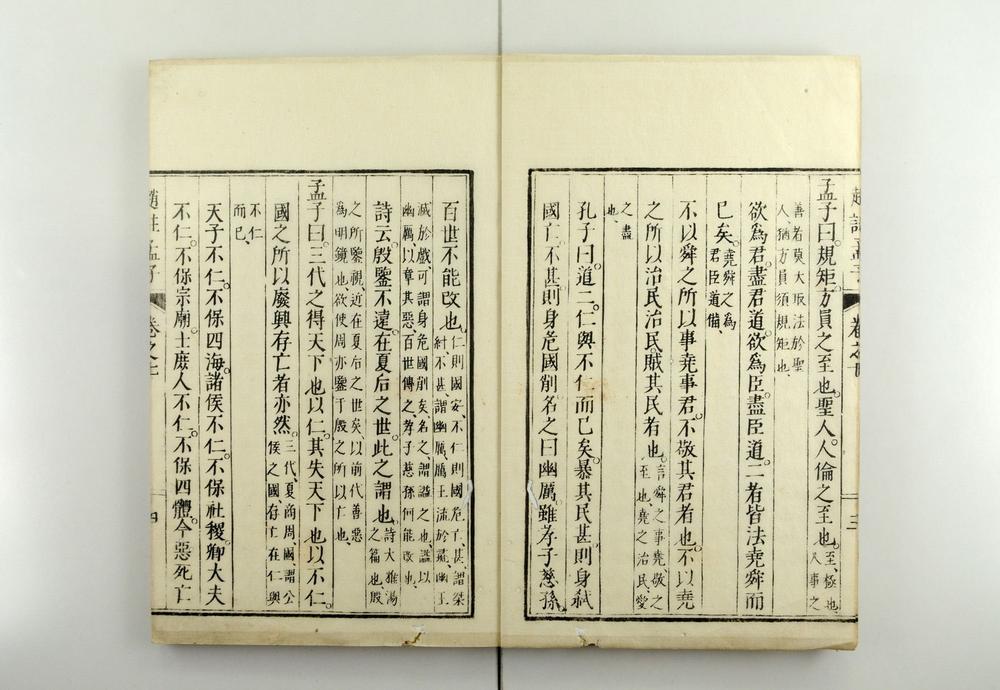 趙註孟子 卷之七 三
孟子曰。規矩。方員之至也。聖人。人倫之至也。至、極也、
人事之
善者莫大取法於聖
人、猶方員須規矩也、
欲爲君盡君道。欲爲臣。盡臣道。二者皆法堯舜而
已矣。堯舜之爲
君臣道備、
不以舜之所以事堯事君。不敬其君者也。不以堯
之所以治民治民。賊其民者也。言舜之事堯、敬之
至也、堯之治民、愛
之盡
也、
孔子曰。道二。仁與不仁而已矣。暴其民甚。則身弒
國亡。不甚。則身危國削。名之曰幽厲。雖孝子慈孫。
百世不能改也。仁則國安、不仁則國危亡、甚、謂桀
紂、不甚謂幽厲、厲王流於彘、幽王
滅於戲、可謂身危國削矣、名之、謂謚之也、謚以
幽厲、以章其惡、百世傳之、孝子慈孫、何能改也、
詩云。殷鑒不遠。在夏后之世。此之謂也。詩大雅蕩
之篇也、殷
之所鑒視、近在夏后之世矣、以前代善惡
爲明鏡也、欲使周亦鑒于殷之所以亡也、
孟子曰。三代之得天下也以仁。其失天下也以不仁。
國之所以廢興存亡者亦然。三代、夏商周、國、謂公
侯之國、存亡在仁與
不仁
而已、
天子不仁。不保四海。諸侯不仁。不保社稷。卿大夫
不仁。不保宗廟。士庶人不仁。不保四體。今惡死亡
趙註孟子 卷之七 四